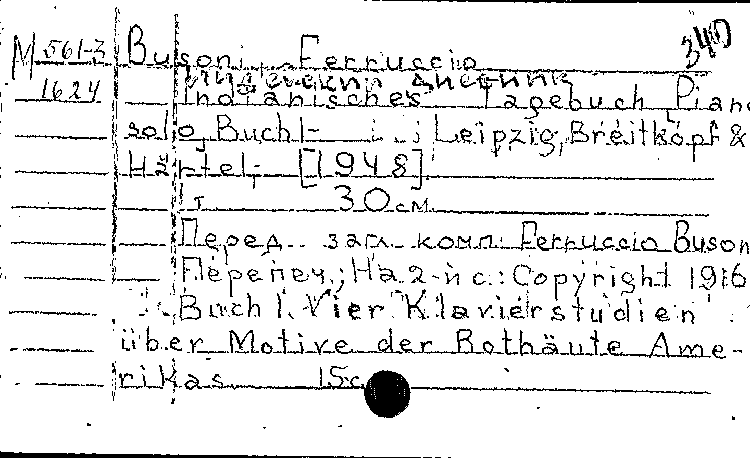 340
M 561-3
1624
Busoni, Ferruccio
Индейский дневник
Indianisches Tagebuch Piano
solo, Buch I- Leipzig, Breitkopf &
Härtel, [1948].
30 см.
Перед загл. комп.: Ferruccio Buson
Перепеч.; На 2-й с.: Copyright 1916
Buch I. Vier Klavierstudien
über Motive der Rothäute Ame-
rikas 15 с.